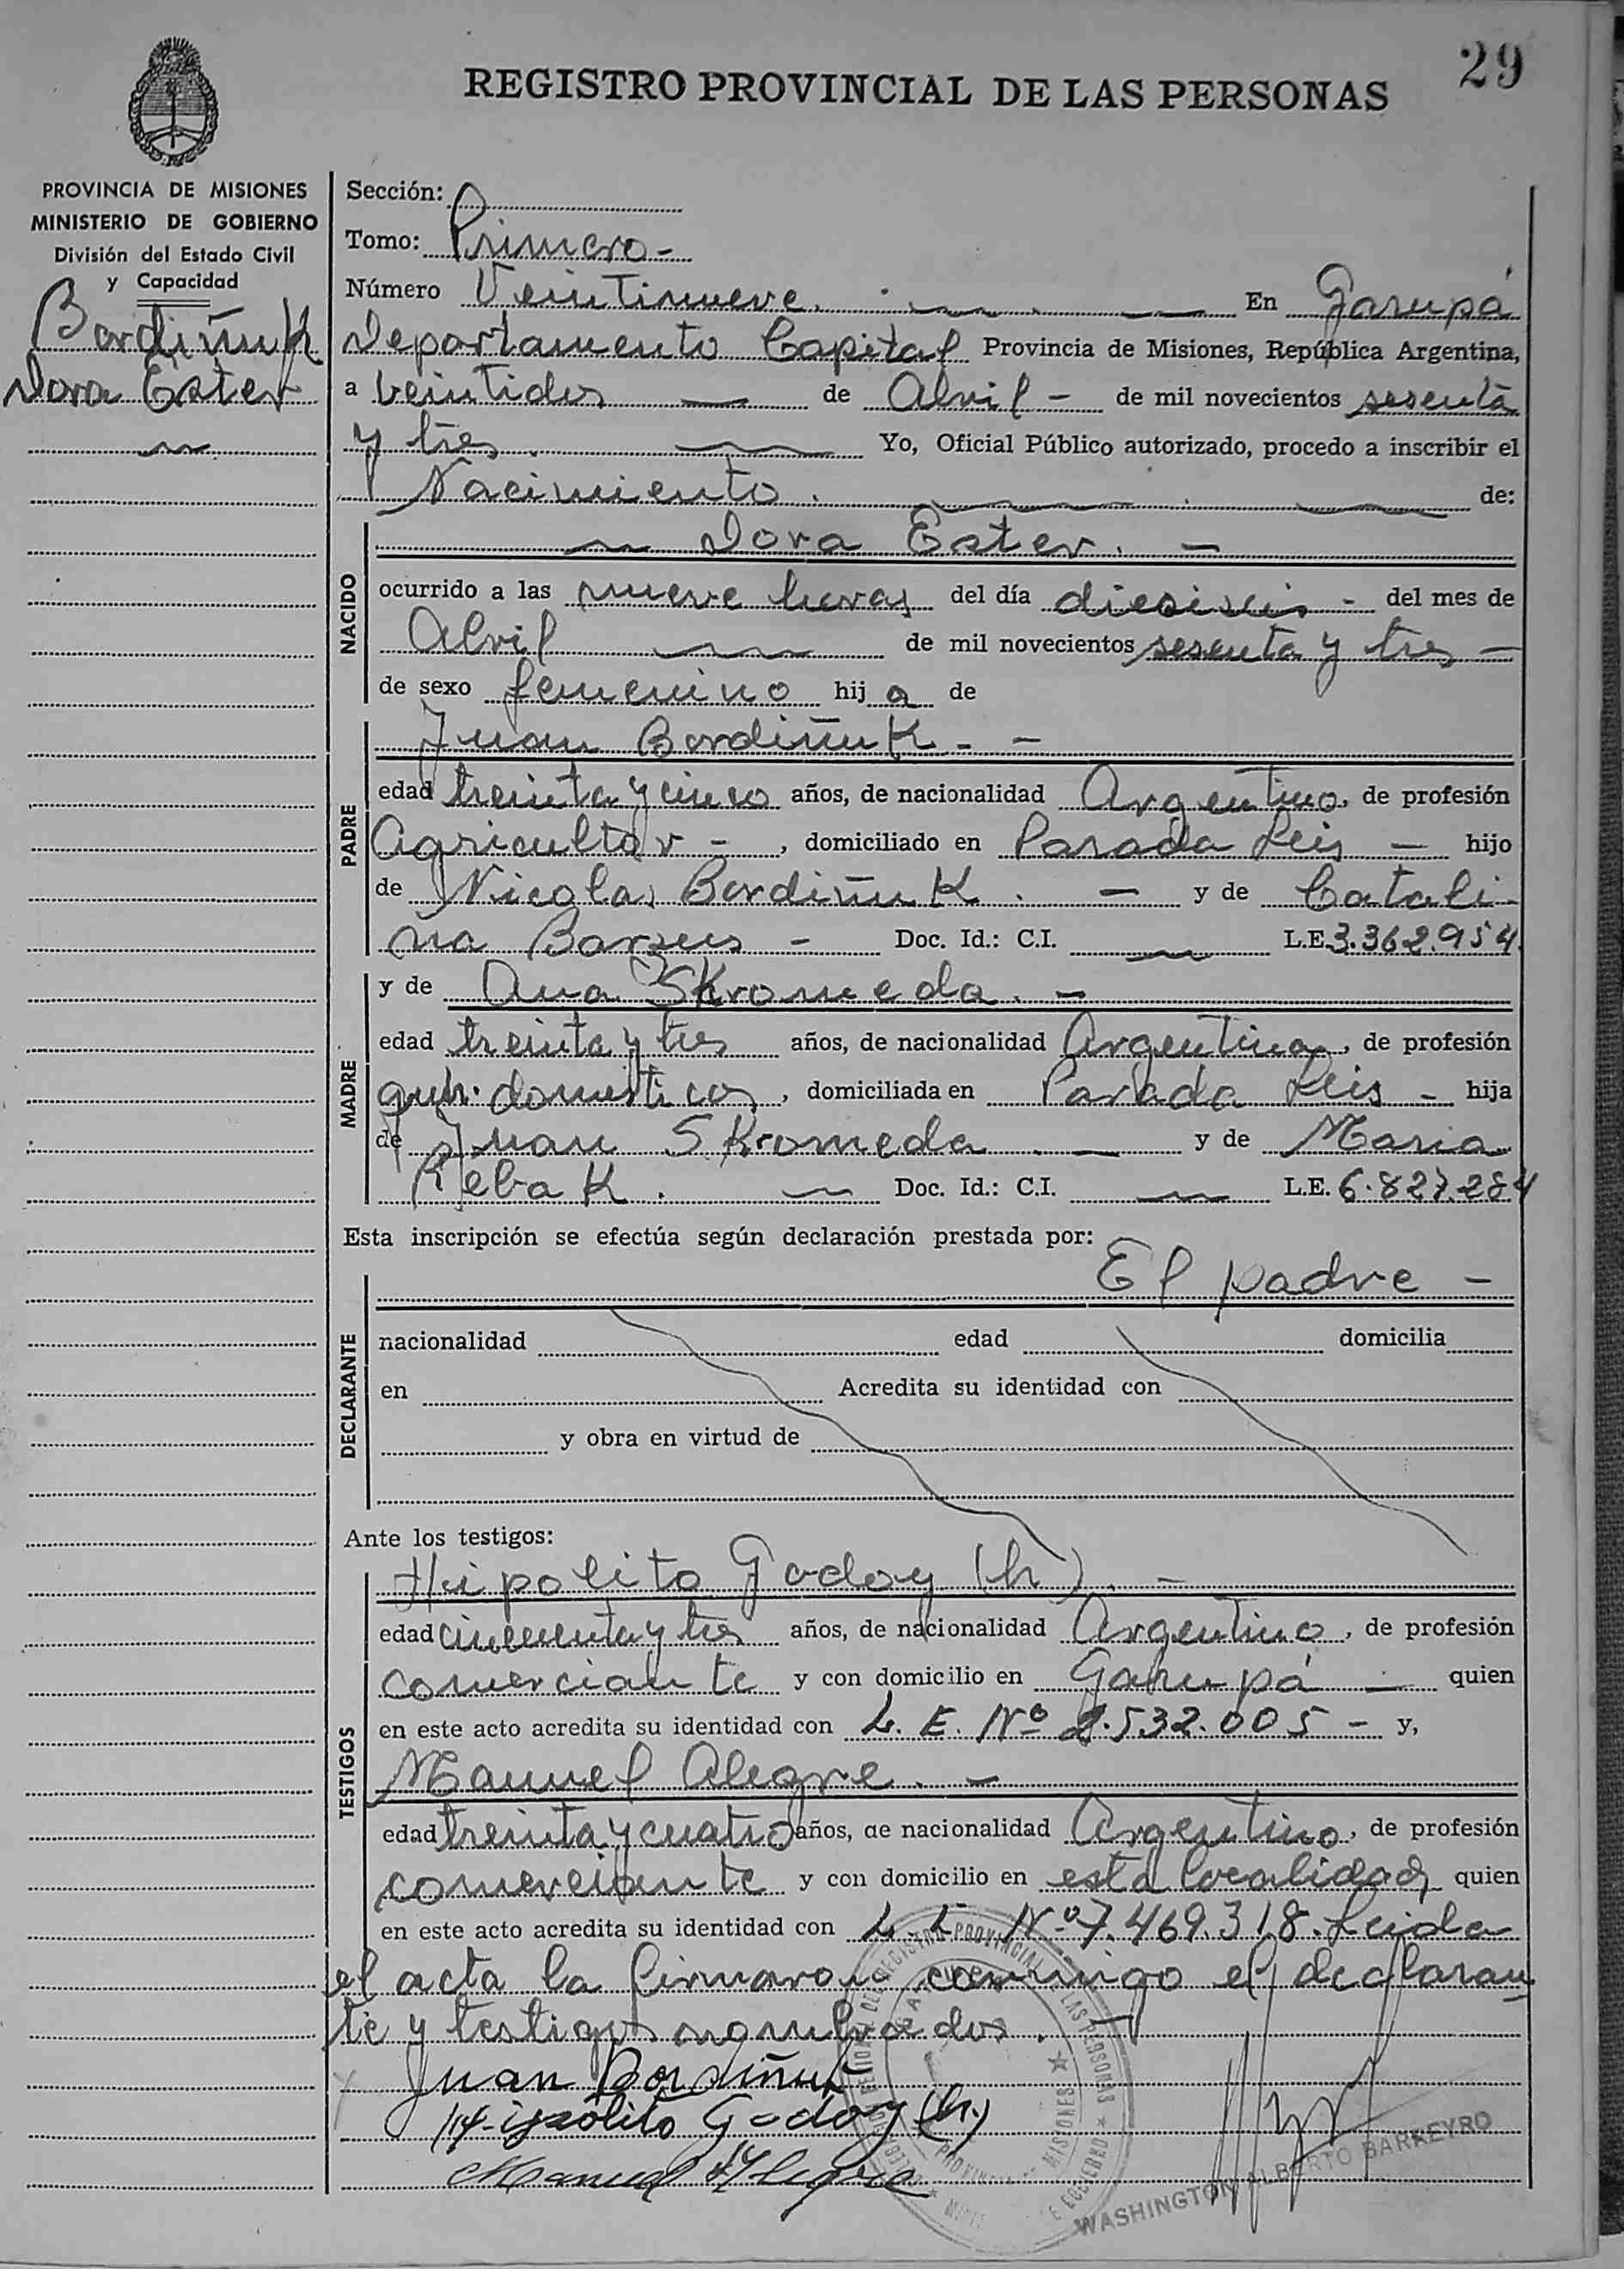 29
REGISTRO PROVINCIAL DE LAS PERSONAS
PROVINCIA DE MISIONES
MINISTERIO DE GOBIERNO
División del Estado Civil
y Capacidad
Bordiñuk
Dora Ester
Sección:
Tomo: Primero -
Número Veintinueve. En Garupá
Departamento Capital Provincia de Misiones, República Argentina,
a veintidos de Abril - de mil novecientos sesenta
y tres. Yo, Oficial Público autorizado, procedo a inscribir el
Nacimiento. de:
NACIDO
Dora Ester. -
ocurrido a las nueve horas del día dieciseis - del mes de
Abril de mil novecientos sesenta y tres -
de sexo femenino hij a de
PADRE
Juan Bordiñuk - -
edad treinta y cinco años, de nacionalidad Argentino, de profesión
Agricultor - , domiciliado en Parada Leis - hijo
de Nicolas Bordiñuk. - y de Catali-
na - Doc. Id.: C.I. L.E. 3.362.954
MADRE
y de Ana Skromeda. -
edad treinta y tres años, de nacionalidad Argentina, de profesión
queh. domesticos, domiciliada en Parada Leis - hija
de Juan Skromeda. y de Maria
Rebak. Doc. Id.: C.I. L.E. 6.827.284
Esta inscripción se efectúa según declaración prestada por:
El padre -
DECLARANTE
nacionalidad edad domicilia
en Acredita su identidad con
y obra en virtud de
Ante los testigos:
TESTIGOS
Hipolito Godoy (h). -
edad cincuenta y tres años, de nacionalidad Argentino, de profesión
comerciante y con domicilio en Garupá - quien
en este acto acredita su identidad con L. E. Nº 2.532.005 - y,
Manuel Alegre. -
edad treinta y cuatro años, de nacionalidad Argentino, de profesión
comerciante y con domicilio en esta localidad, quien
en este acto acredita su identidad con L. E. Nº 7.469.318. Leida
el acta la firmaron conmigo el declaran
te y testigos nombrados. -
Juan Bordiñuk
Hipólito Godoy (h.)
Manuel Alegre
WASHINGTON ALBERTO BARREYRO